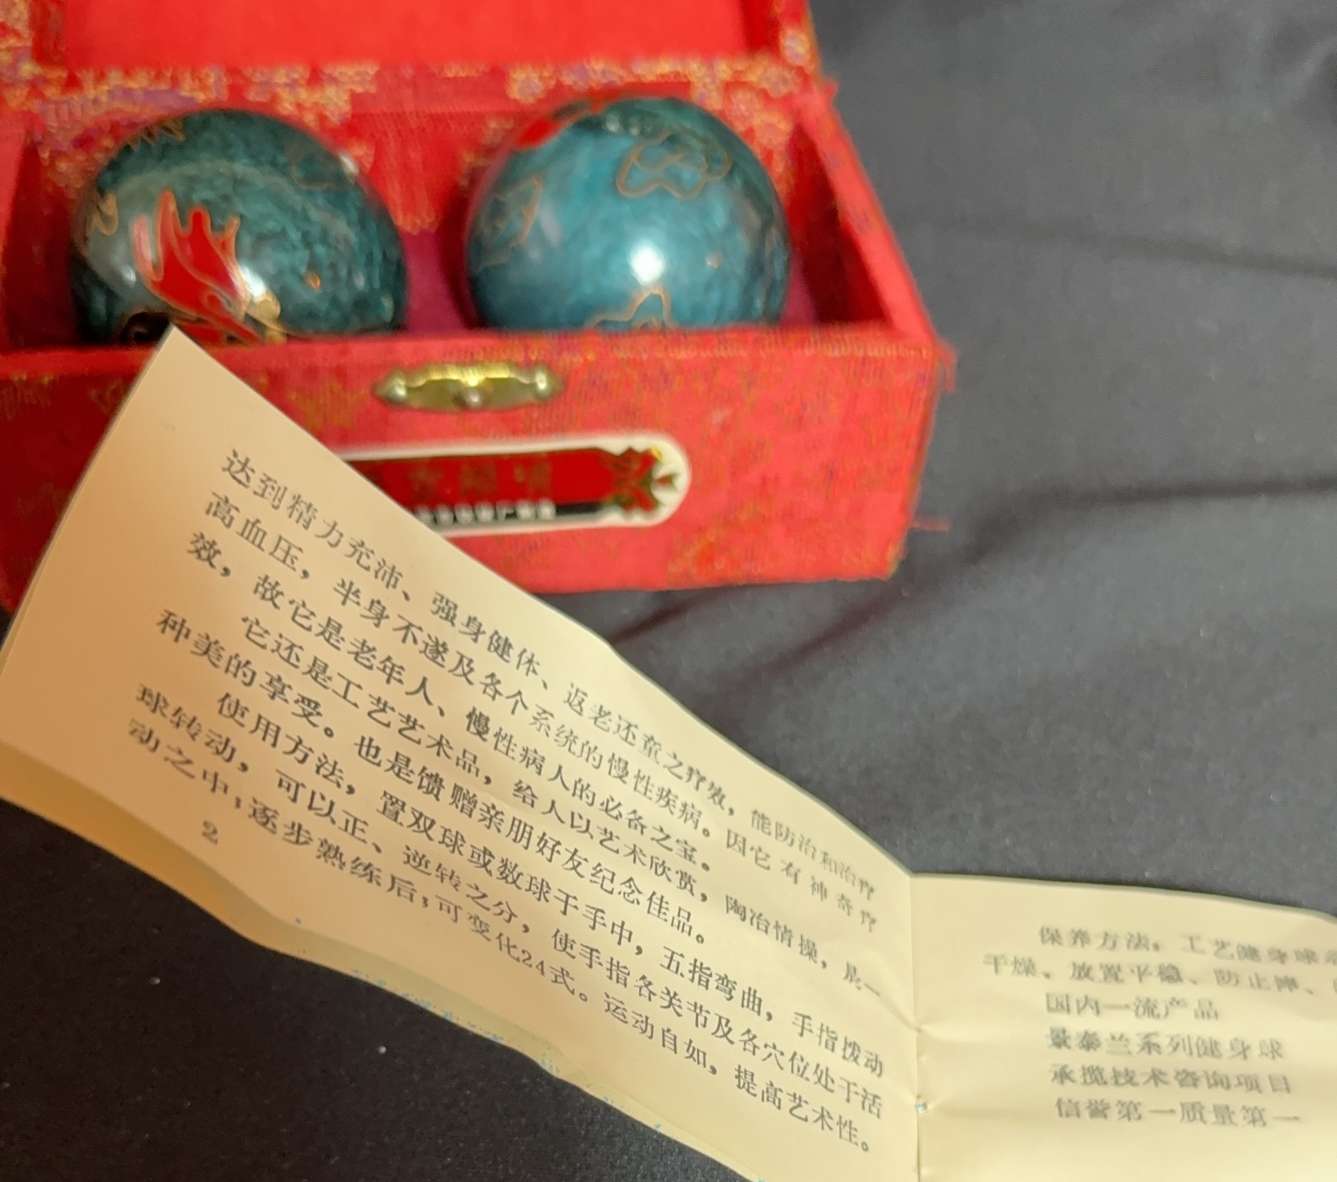 达到精力充沛、强身健体、返老还童之疗效，能防治和治疗
高血压，半身不遂及各个系统的慢性疾病。因它有神奇疗
效，故它是老年人、慢性病人的必备之宝。
它还是工艺艺术品，给人以艺术欣赏，陶冶情操，是一
种美的享受。也是馈赠亲朋好友纪念佳品。
使用方法，置双球或数球于手中，五指弯曲，手指拨动
球转动，可以正、逆转之分，使手指各关节及各穴位处于活
动之中；逐步熟练后；可变化24式。运动自如，提高艺术性。
2
保养方法：工艺健身球
干燥、放置平稳、防止摔、
国内一流产品
景泰兰系列健身球
承揽技术咨询项目
信誉第一质量第一